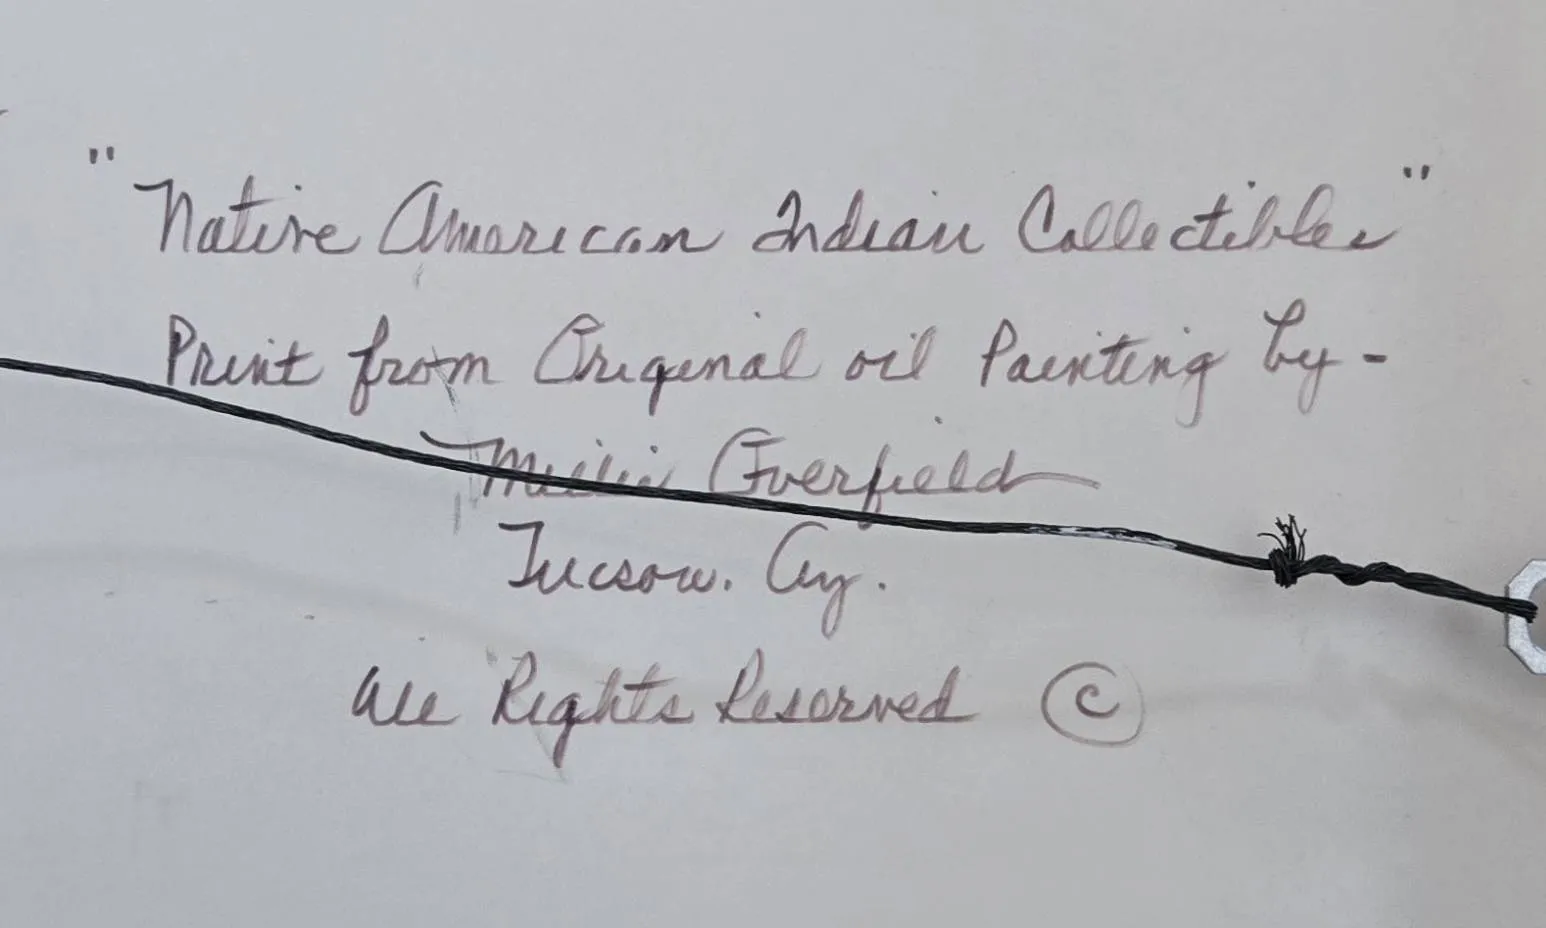 "Native American Indian Collectibles"
Print from Original oil Painting by -
Millie Overfield
Tucson. Az.
All Rights Reserved ©